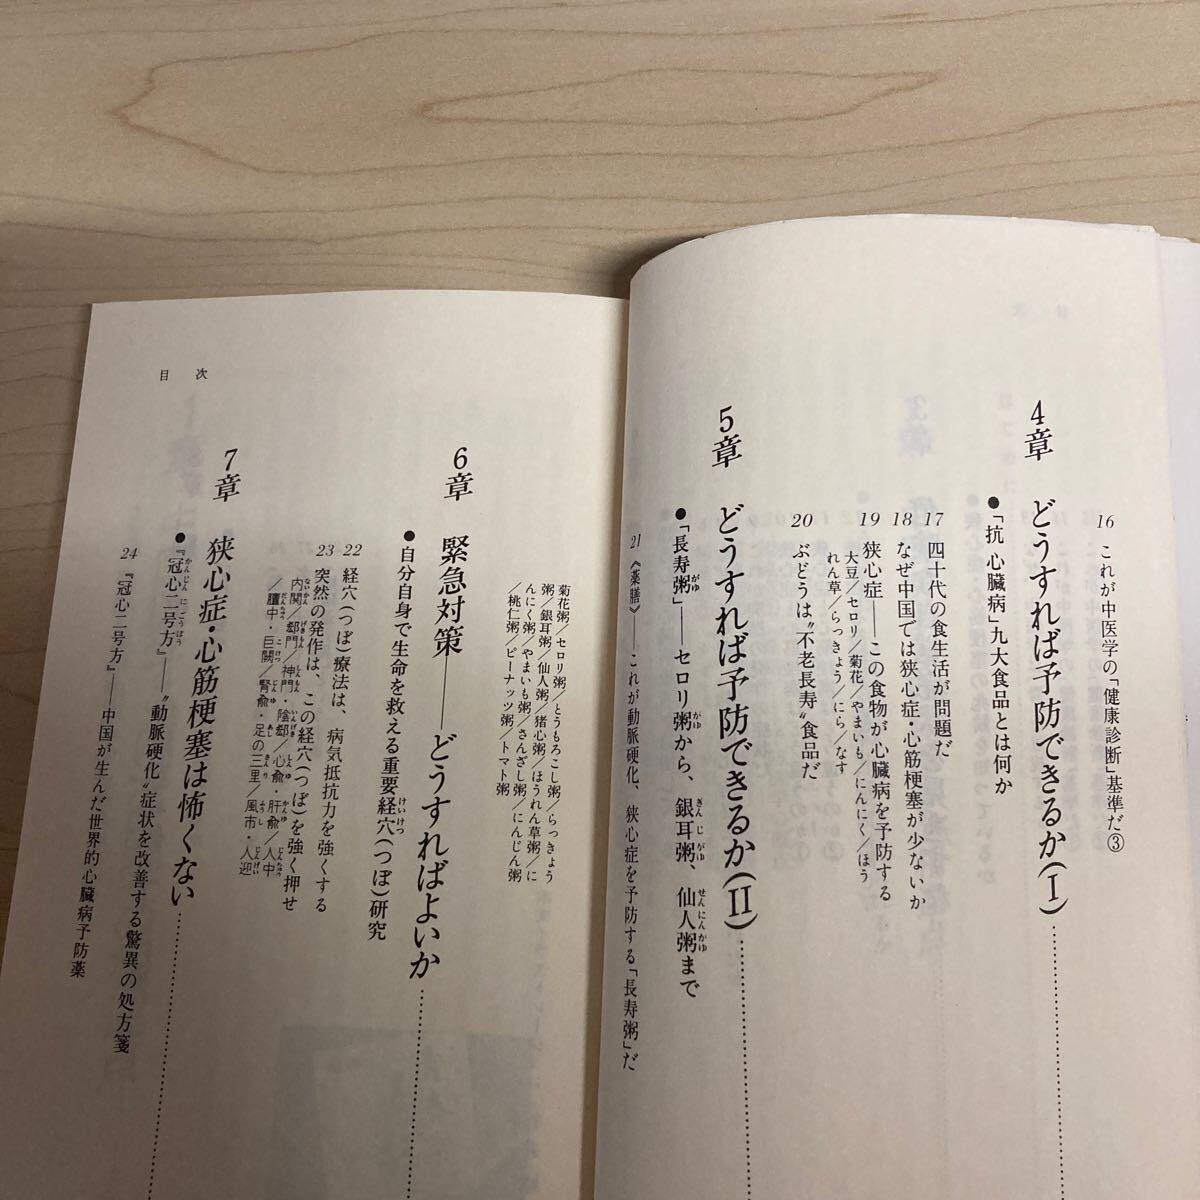 16 これが中医学の「健康診断」基準だ③
4章 どうすれば予防できるか(Ⅰ)
●「抗 心臓病」九大食品とは何か
17 四十代の食生活が問題だ
18 なぜ中国では狭心症・心筋梗塞が少ないか
19 狭心症――この食物が心臓病を予防する
大豆/セロリ/菊花/やまいも/にんにく/ほう
れん草/らっきょう/にら/なす
20 ぶどうは〝不老長寿〟食品だ
5章 どうすれば予防できるか(Ⅱ)
●「長寿粥」――セロリ粥から、銀耳粥、仙人粥まで
21 《薬膳》――これが動脈硬化、狭心症を予防する「長寿粥」だ
菊花粥/セロリ粥/とうもろこし粥/らっきょう
粥/銀耳粥/仙人粥/猪心粥/ほうれん草粥/に
んにく粥/やまいも粥/さんざし粥/にんじん粥
/桃仁粥/ピーナッツ粥/トマト粥
6章 緊急対策――どうすればよいか
●自分自身で生命を救える重要経穴(つぼ)研究
22 経穴(つぼ)療法は、病気抵抗力を強くする
23 突然の発作は、この経穴(つぼ)を強く押せ
内関/郄門/神門・陰郄/心兪・肝兪/人中
/膻中・巨闕/腎兪・足の三里/風市・人迎
7章 狭心症・心筋梗塞は怖くない
●『冠心二号方』――〝動脈硬化〟症状を改善する驚異の処方箋
24 『冠心二号方』――中国が生んだ世界的心臓病予防薬
目次